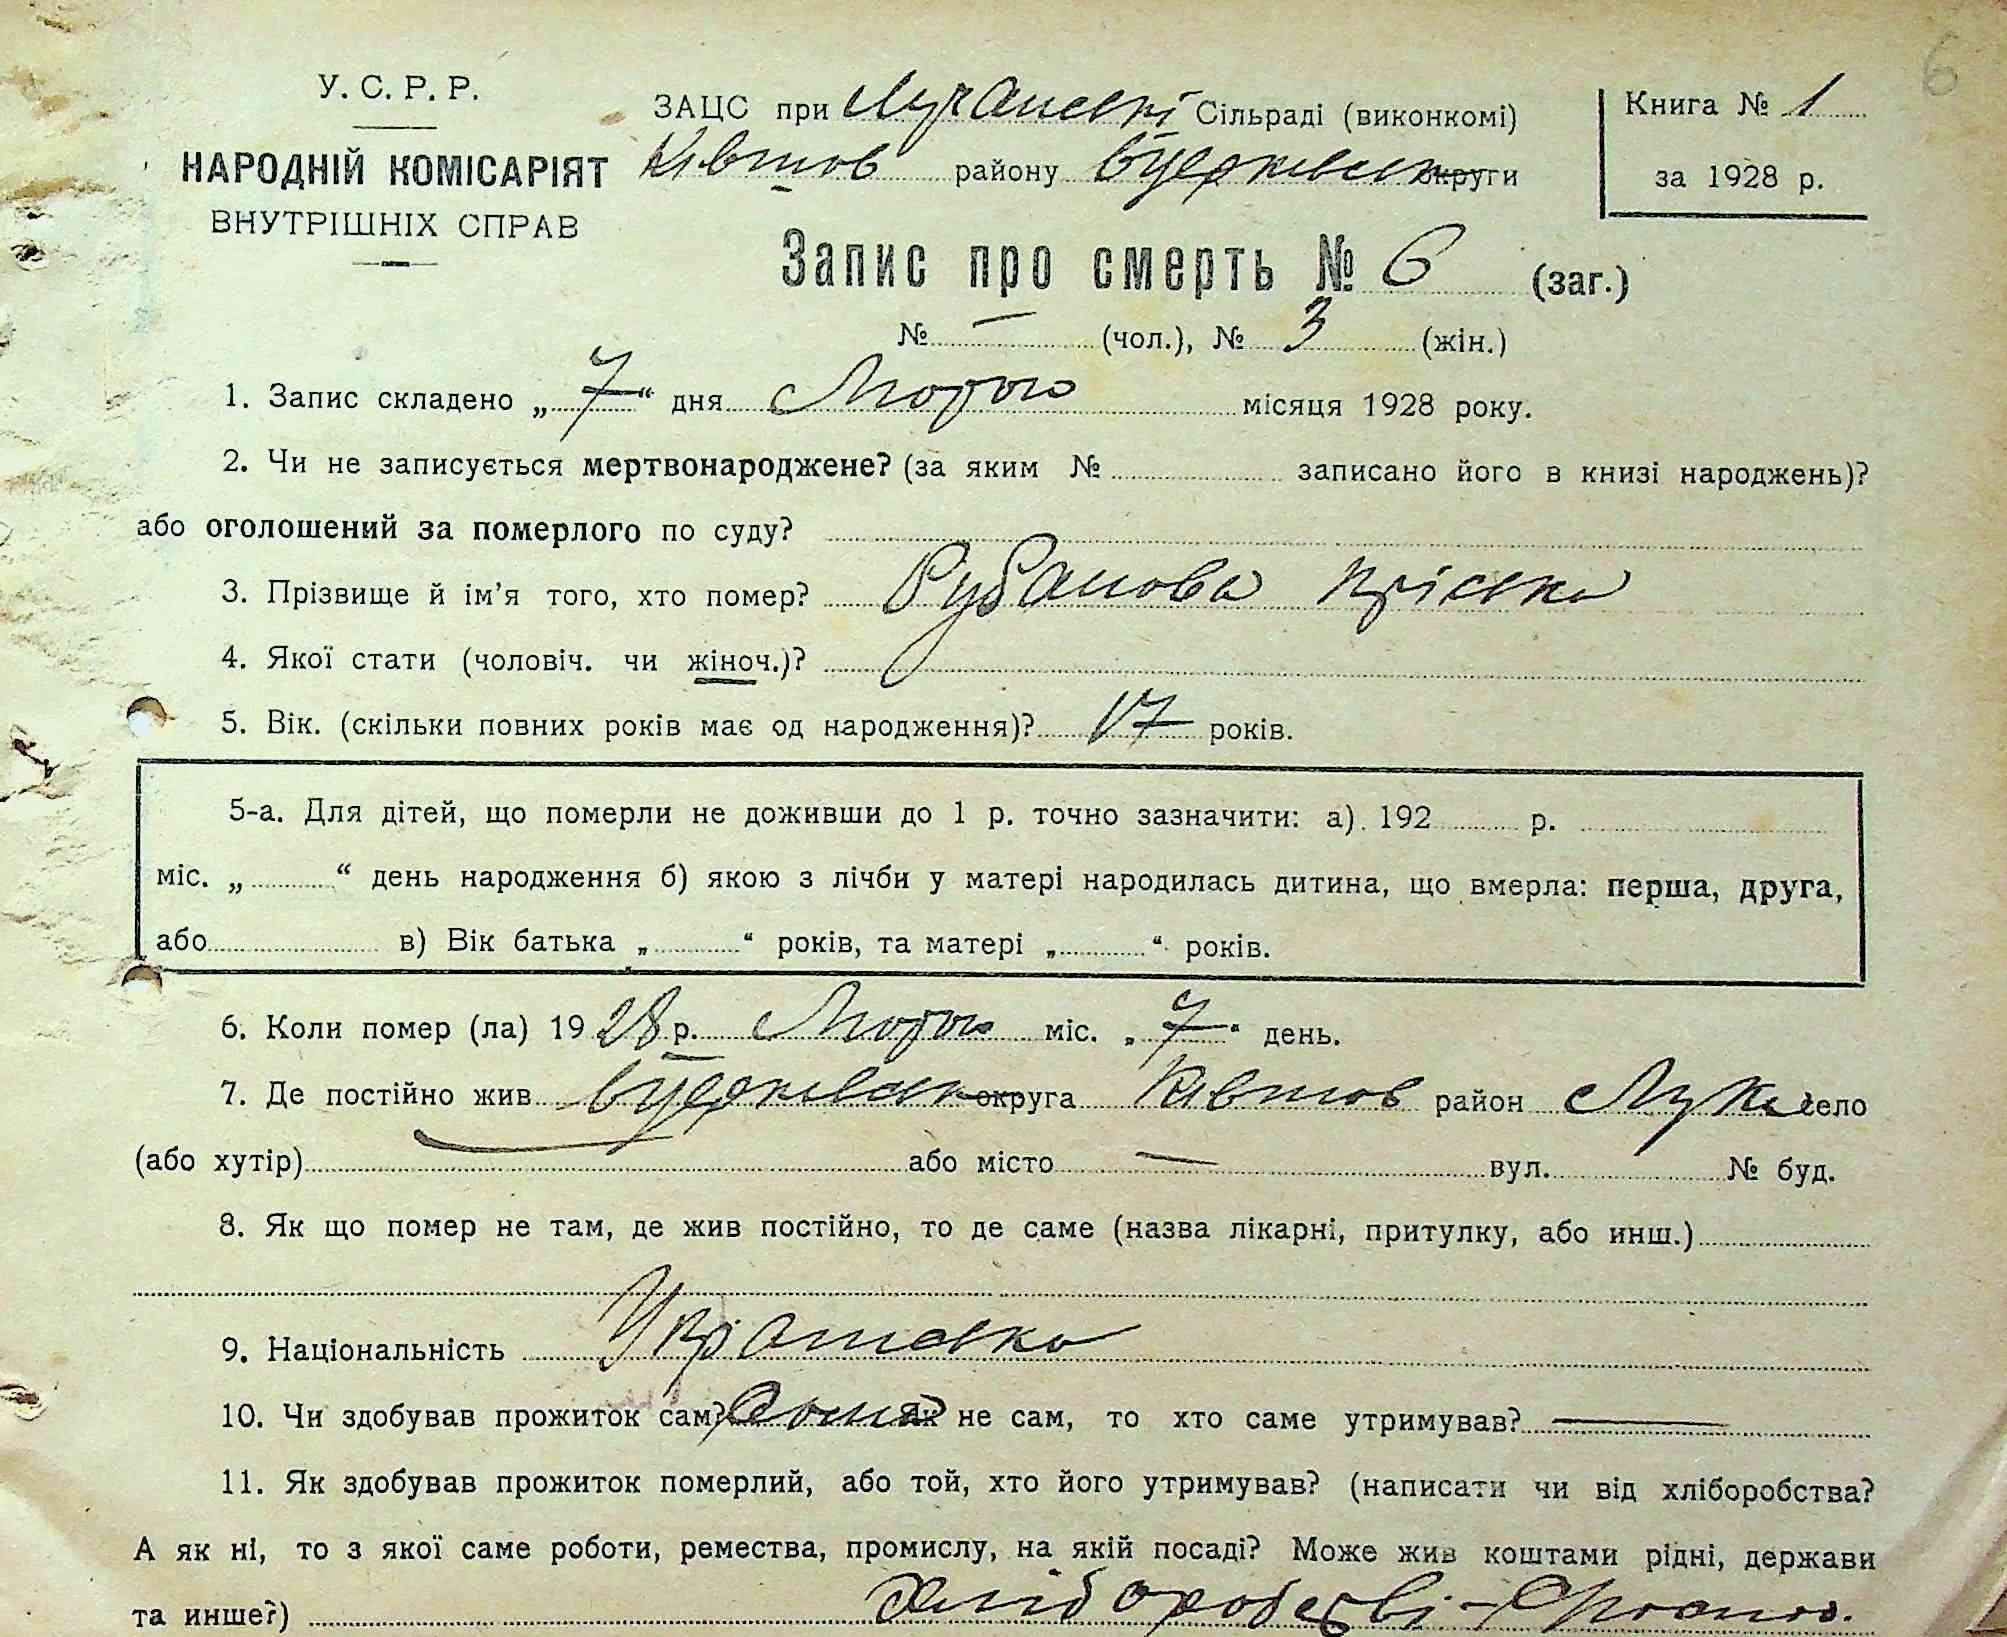 6
У. С. Р. Р.
НАРОДНІЙ КОМІСАРІЯТ
ВНУТРІШНІХ СПРАВ
ЗАЦС при Лучанскі Сільраді (виконкомі)
району округи
Книга № 1
за 1928 р.
Запис про смерть № 6 (заг.)
№ — (чол.), № 3 (жін.)
1. Запис складено „ 7 “ дня Лютого місяця 1928 року.
2. Чи не записується мертвонароджене? (за яким № записано його в книзі народжень)?
або оголошений за померлого по суду?
3. Прізвище й ім’я того, хто помер? Рубанова Пріська
4. Якої стати (чоловіч. чи жіноч.)?
5. Вік. (скільки повних років має од народження)? 17 років.
5-а. Для дітей, що померли не доживши до 1 р. точно зазначити: а) 192 р.
міс. „ “ день народження б) якою з лічби у матері народилась дитина, що вмерла: перша, друга,
або в) Вік батька „ “ років, та матері „ “ років.
6. Коли помер (ла) 19 28 р. Лютого міс. „ 7 “ день.
7. Де постійно жив округа район Лука село
(або хутір) — або місто — вул. № буд.
8. Як що помер не там, де жив постійно, то де саме (назва лікарні, притулку, або инш.)
9. Національність Українська
10. Чи здобував прожиток сам? Сама Як не сам, то хто саме утримував? —
11. Як здобував прожиток померлий, або той, хто його утримував? (написати чи від хліборобства?
А як ні, то з якої саме роботи, ремества, промислу, на якій посаді? Може жив коштами рідні, держави
та инше?)